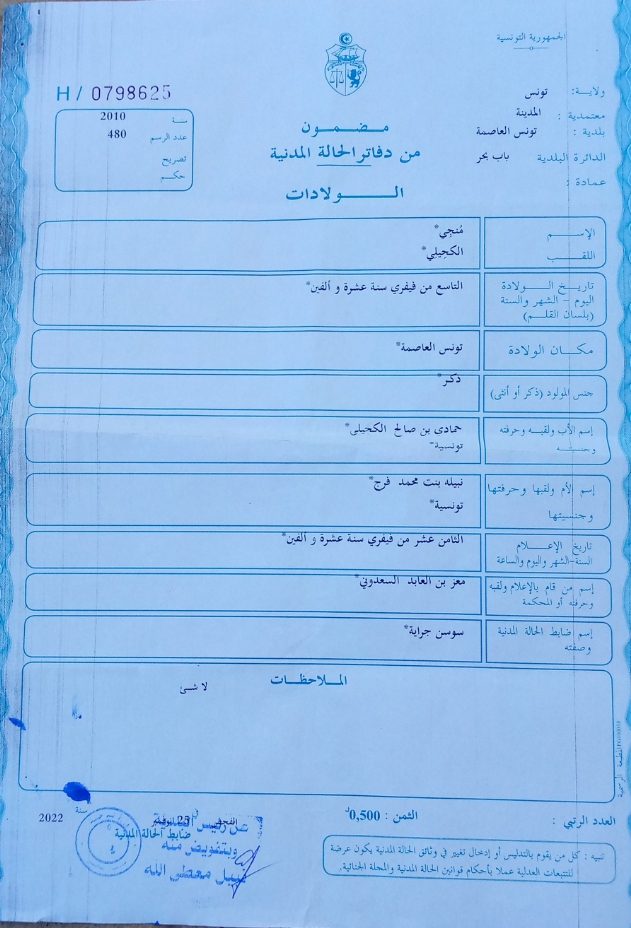 الجمهورية التونسية
H / 0798625
ولاية: تونس
معتمدية : المدينة
بلدية : تونس العاصمة
الدائرة البلدية باب بحر
عمادة :
سنة 2010
عدد الرسم 480
تصريح
حكم
مضمون
من دفاتر الحالة المدنية
الولادات
الإسم
مُنجي*
اللقب
الكحيلي*
تاريخ الولادة
اليوم - الشهر والسنة
(بلسان القلم)
التاسع من فيفري سنة عشرة و ألفين*
مكان الولادة
تونس العاصمة*
جنس المولود (ذكر أو أنثى)
ذكر*
إسم الأب ولقبه وحرفته
وجنسيته
حمادي بن صالح الكحيلي*
تونسية*
إسم الأم ولقبها وحرفتها
وجنسيتها
نبيله بنت محمد فرج*
تونسية*
تاريخ الإعلام
السنة-الشهر واليوم والساعة
الثامن عشر من فيفري سنة عشرة و ألفين*
إسم من قام بالإعلام ولقبه
وحرفته أو المحكمة
معز بن العابد السعدوني*
إسم ضابط الحالة المدنية
وصفته
سوسن جراية*
الملاحظات
لا شئ
المطبعة الرسمية
العدد الرتبي :
الثمن : 0,500د
25
سنة 2022
ضابط الحالة المدنية
عن رئيس
وبتفويض منه
نبيل معطي الله
تنبيه : كل من يقوم بالتدليس أو إدخال تغيير في وثائق الحالة المدنية يكون عرضة
للتتبعات العدلية عملا بأحكام قوانين الحالة المدنية والمجلة الجنائية.